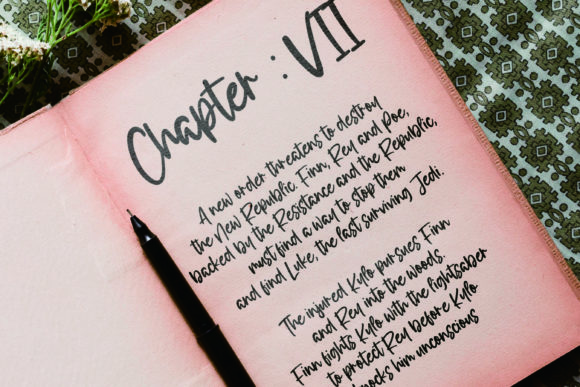 Chapter : VII
A new order threatens to destroy
the New Republic. Finn, Rey and Poe,
backed by the Resistance and the Republic,
must find a way to stop them
and find Luke, the last surviving Jedi.
The injured Kylo pursues Finn
and Rey into the woods.
Finn fights Kylo with the lightsaber
to protect Rey before Kylo
knocks him unconscious